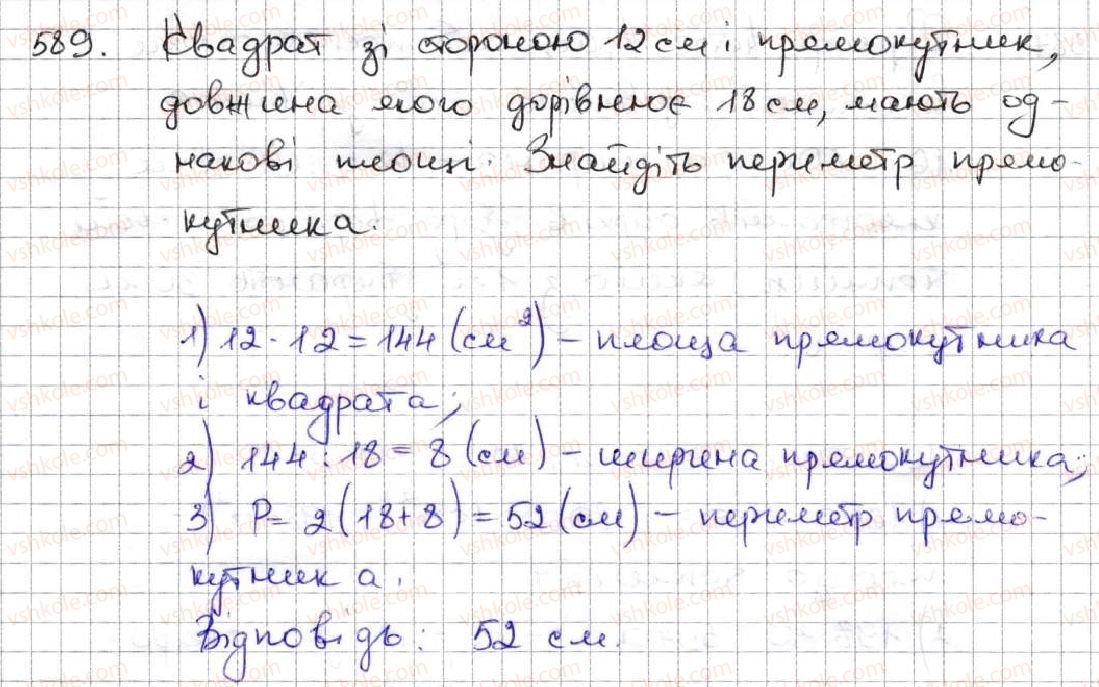 589. Квадрат зі стороною 12 см і прямокутник,
довжина якого дорівнює 18 см, мають од-
накові площі. Знайдіть периметр прямо-
кутника.
1) 12 · 12 = 144 (см²) – площа прямокутника
і квадрата;
2) 144 : 18 = 8 (см) – ширина прямокутника;
3) P = 2 (18 + 8) = 52 (см) – периметр прямо-
кутника.
Відповідь: 52 см.